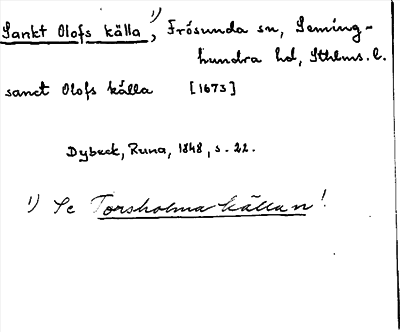 Sankt Olofs källa ¹⁾, Frösunda sn, Seming-
hundra hd, Sthlms. l.
sanct Olofs källa [1673]
Dybeck, Runa, 1848, s. 22.
¹⁾ Se Torsholma källan!